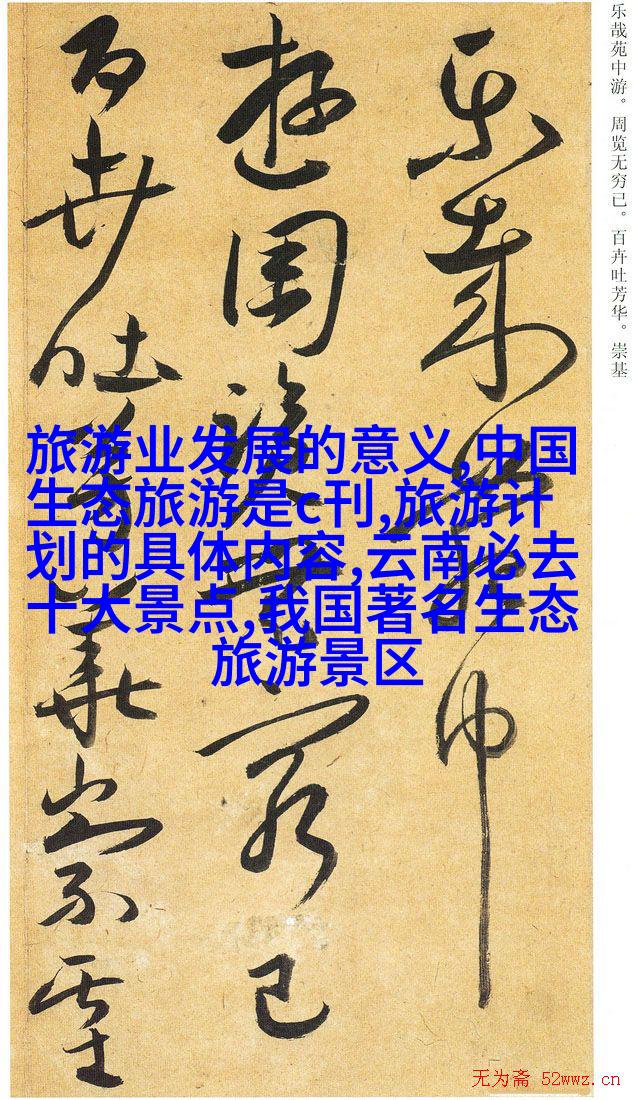 乐哉苑中游。周览无穷已。百卉吐芳华。崇基
樂哉苑中
遊周覽無窮已
百卉吐芳華崇基
旅游业发展的意义,中国
生态旅游是c刊,旅游计
划的具体内容,云南必去
十大景点,我国著名生态
旅游景区
无为斋 52wwz.cn